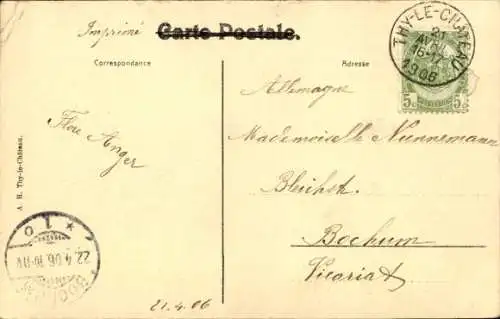 Imprimé
Carte Postale.
THY-LE-CHATEAU
21
AVRIL
16-17
1906
Correspondance
Adresse
5
5
Allemagne
Mademoiselle Nünnemann
Flore Anger
Bleichst.
Bochum
Vicariat
A. H. Thy-le-Château.
22.4.06.10-11V
21.4.06